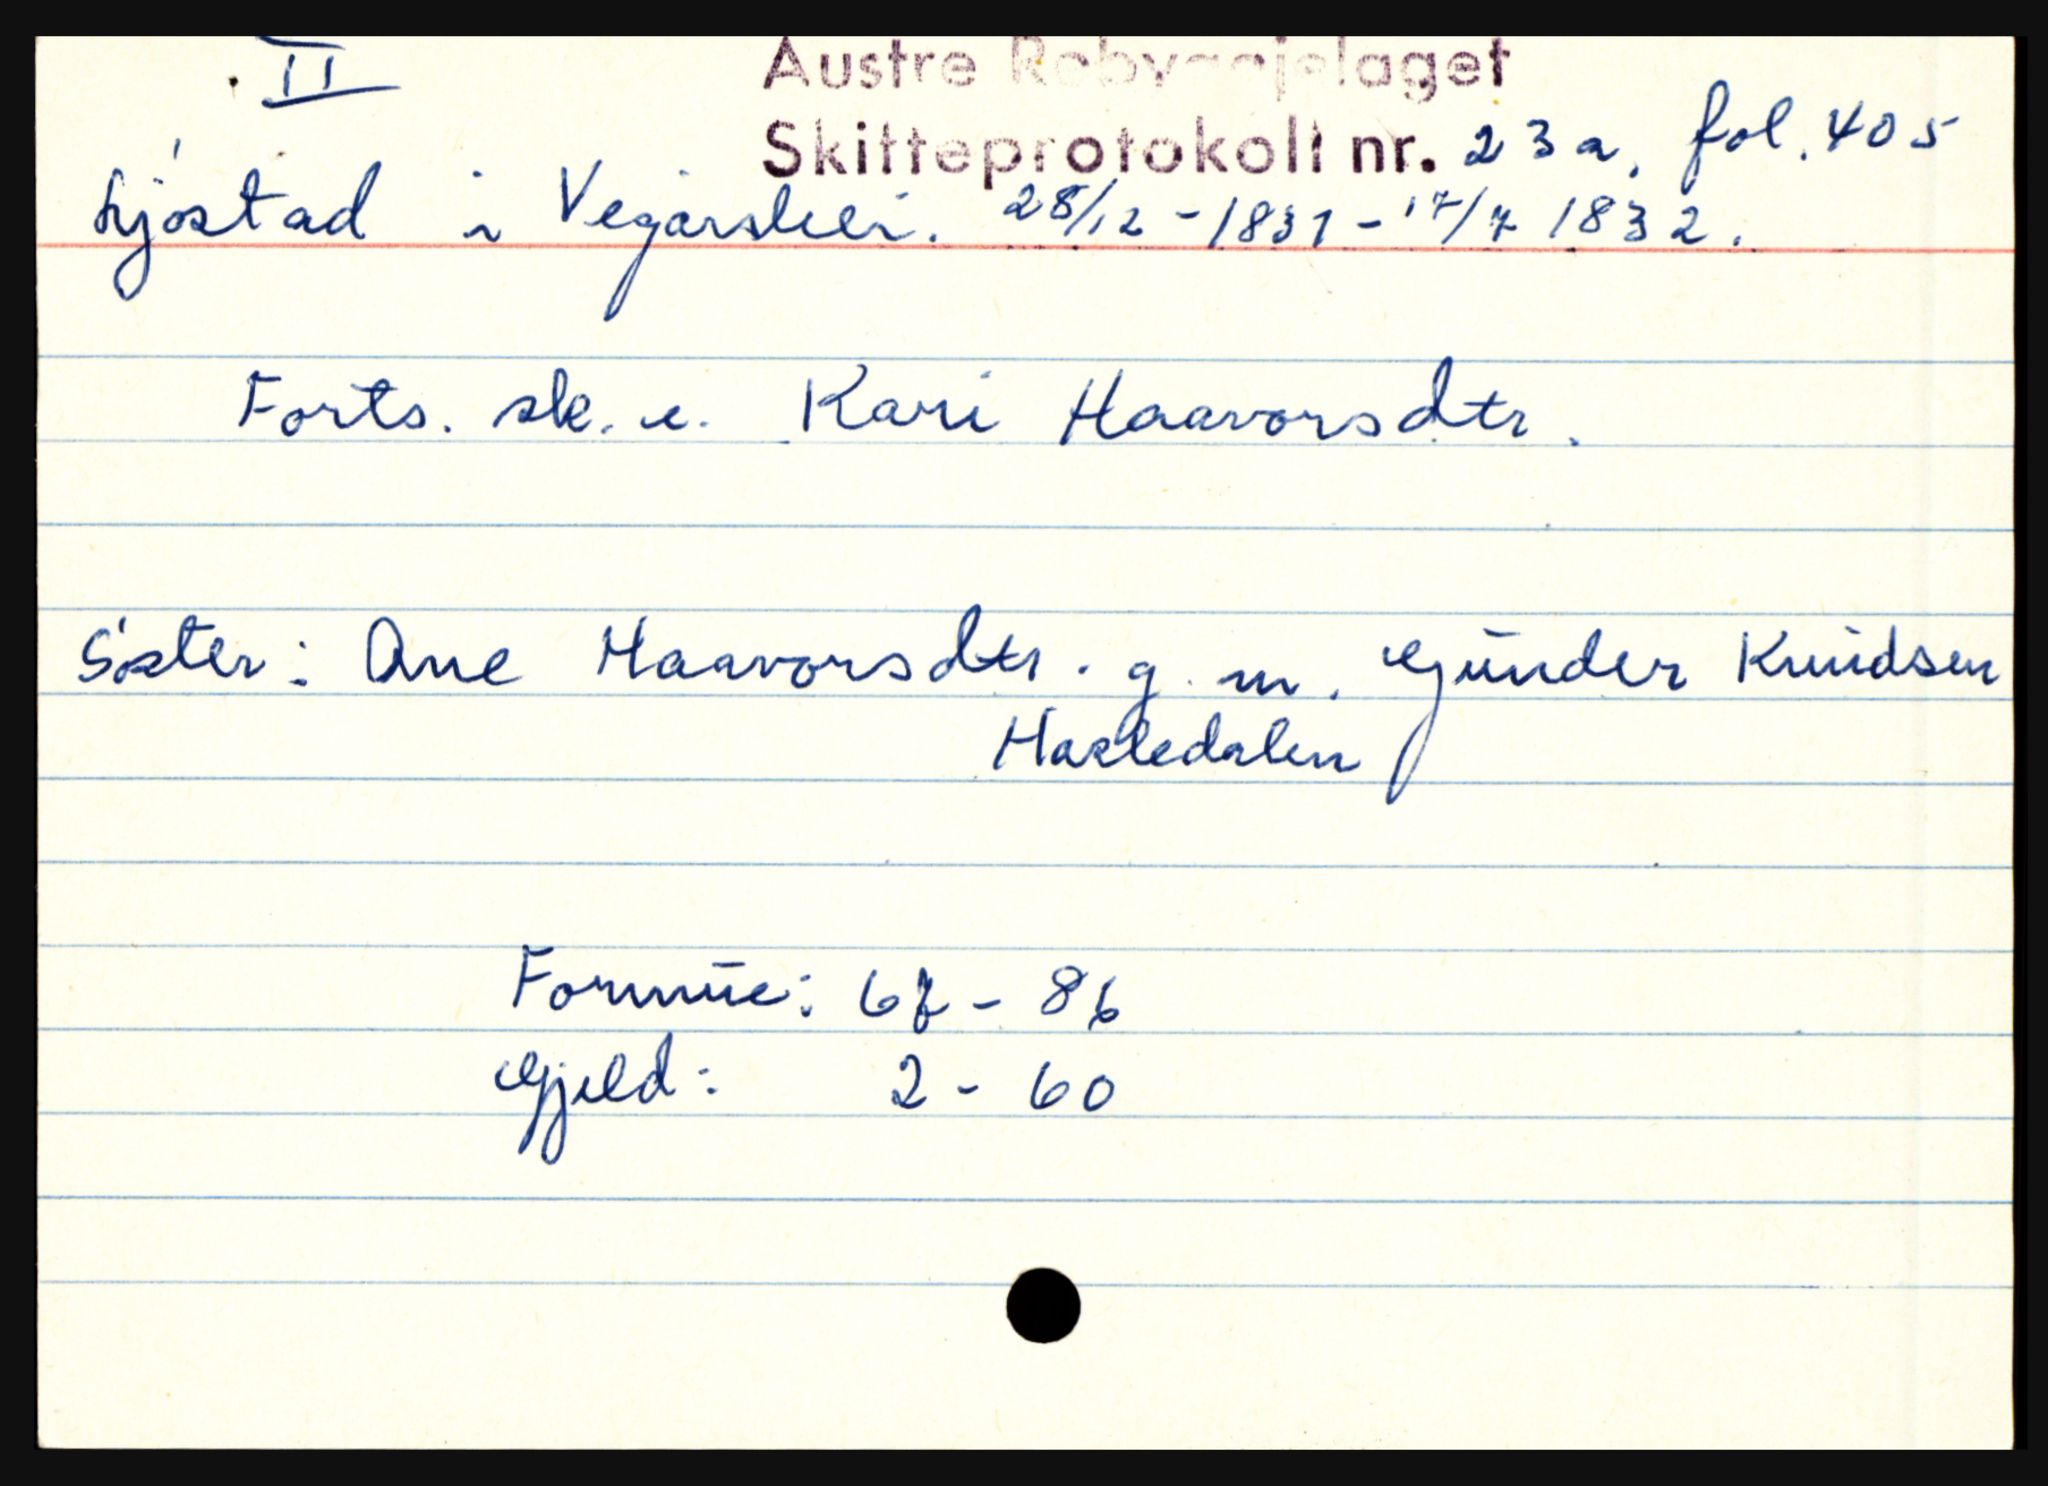 II
Austre Robyggjelaget
Skifteprotokoll nr. 23a, fol. 405
Ljøstad i Vegårshei. 28/12 - 1831 - 17/7 1832.
Forts. sk. e. Kari Haavorsdtr.
Søster: Ane Haavorsdtr. g. m. Gunder Knudsen
Hasledalen
Formue: 67 - 86
Gjeld: 2 - 60